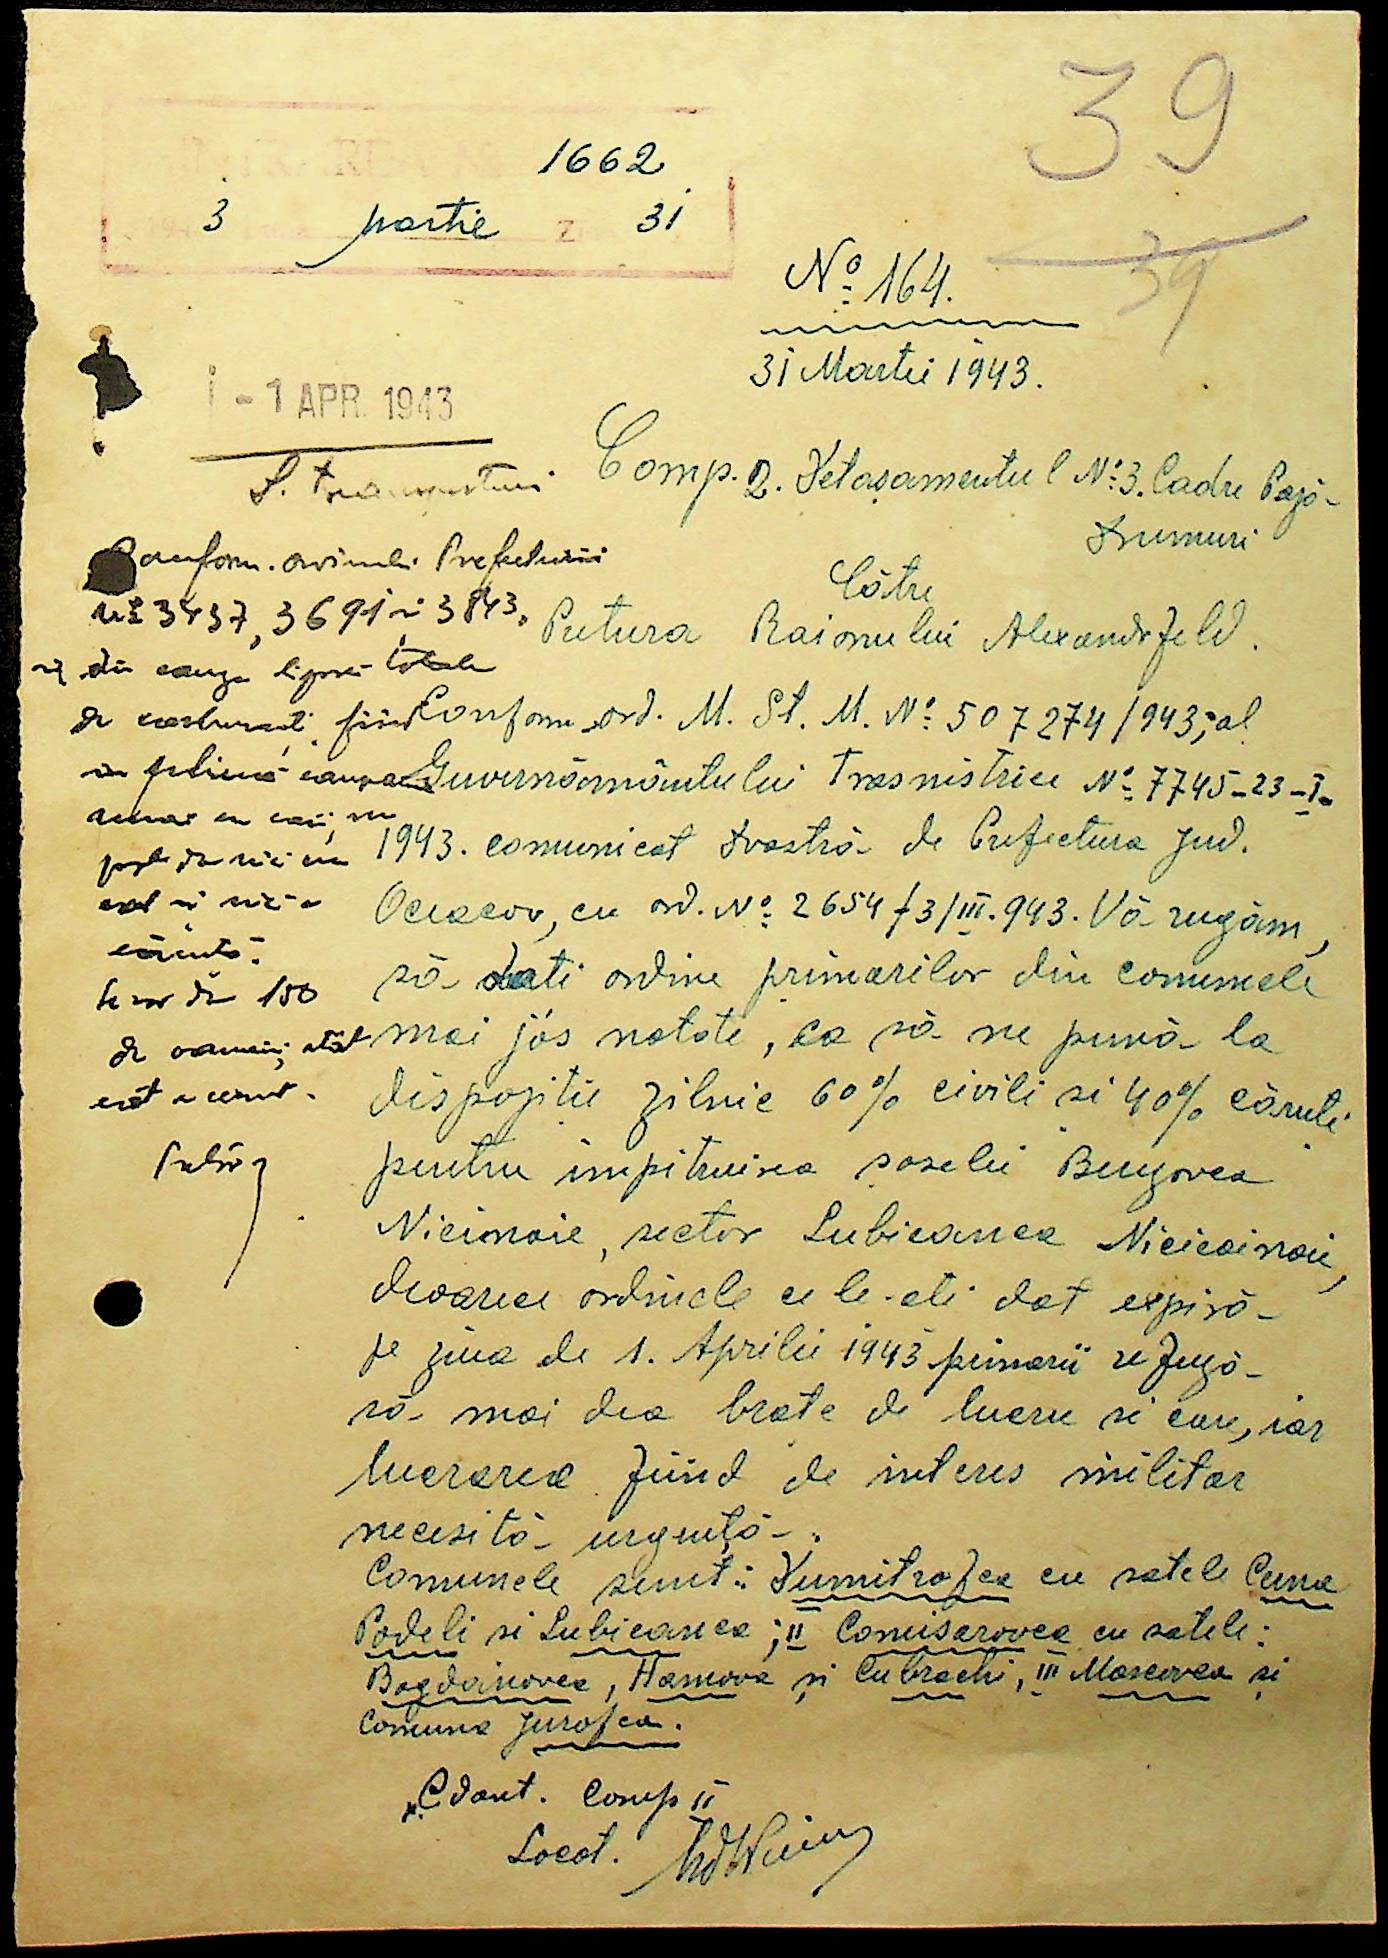 39
1662
3 martie 31
39
Nº 164.
31 Martie 1943.
- 1 APR. 1943
S. Transporturi
Comp. 2. Detașamentul Nº 3. Cadre Pază-
Drumuri
Către
Pretura Raionului Alexandrfeld.
Conform ord. M. St. M. Nº 507274/943; al
Guvernământului Trasnistriei Nº 7745-23-I-
1943. comunicat Dvastră de Prefectura Jud.
Oceacov, cu ord. Nº 2654/3/III.943. Vă rugăm,
să dati ordine primarilor din comunele
mai jos notate, ca să ne pună la
dispozitie zilnic 60% civili si 40% căruti
pentru impietruirea soselei Bugovca
Nicinoaie, sector Lubicanca
deoarece ordinele ce le-ati dat expiră
pe ziua de 1. Aprilie 1943 primarii refuză
să mai dea brate de lucru si care, iar
lucrarea fiind de interes militar
necesită urgență.
Comunele sunt: Dumitrofca cu satele Cuma
Podeli si Lubicanca; II Comisarovca cu satele:
Bogdanovca, Hamova și Cubrachi, III Moscovca și
Comuna Jurofca.
Cdant. Comp II
Locot.
Conform. ordinului Prefecturii
nº 3437, 3691 și 3843,
și din cauza lipsei totale
de carburanți, fiind
în plină campanie
nu
pot da nici un
car și nici o
căruță.
Se vor da 100
de oameni, atât
cât a cerut.
Pretor